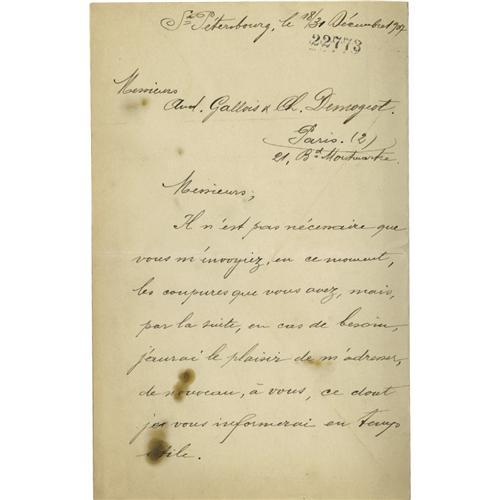 St Pétersbourg, le 18/31 Décembre 1907
22773
Messieurs
Aud. Gallois & Ch. Demogeot.
Paris. (2)
21, Bd Montmartre.
Messieurs,
Il n'est pas nécessaire que
vous m'envoyiez, en ce moment,
les coupures que vous avez, mais,
par la suite, en cas de besoin,
j'aurai le plaisir de m'adresser,
de nouveau, à vous, ce dont
je vous informerai en temps
utile.